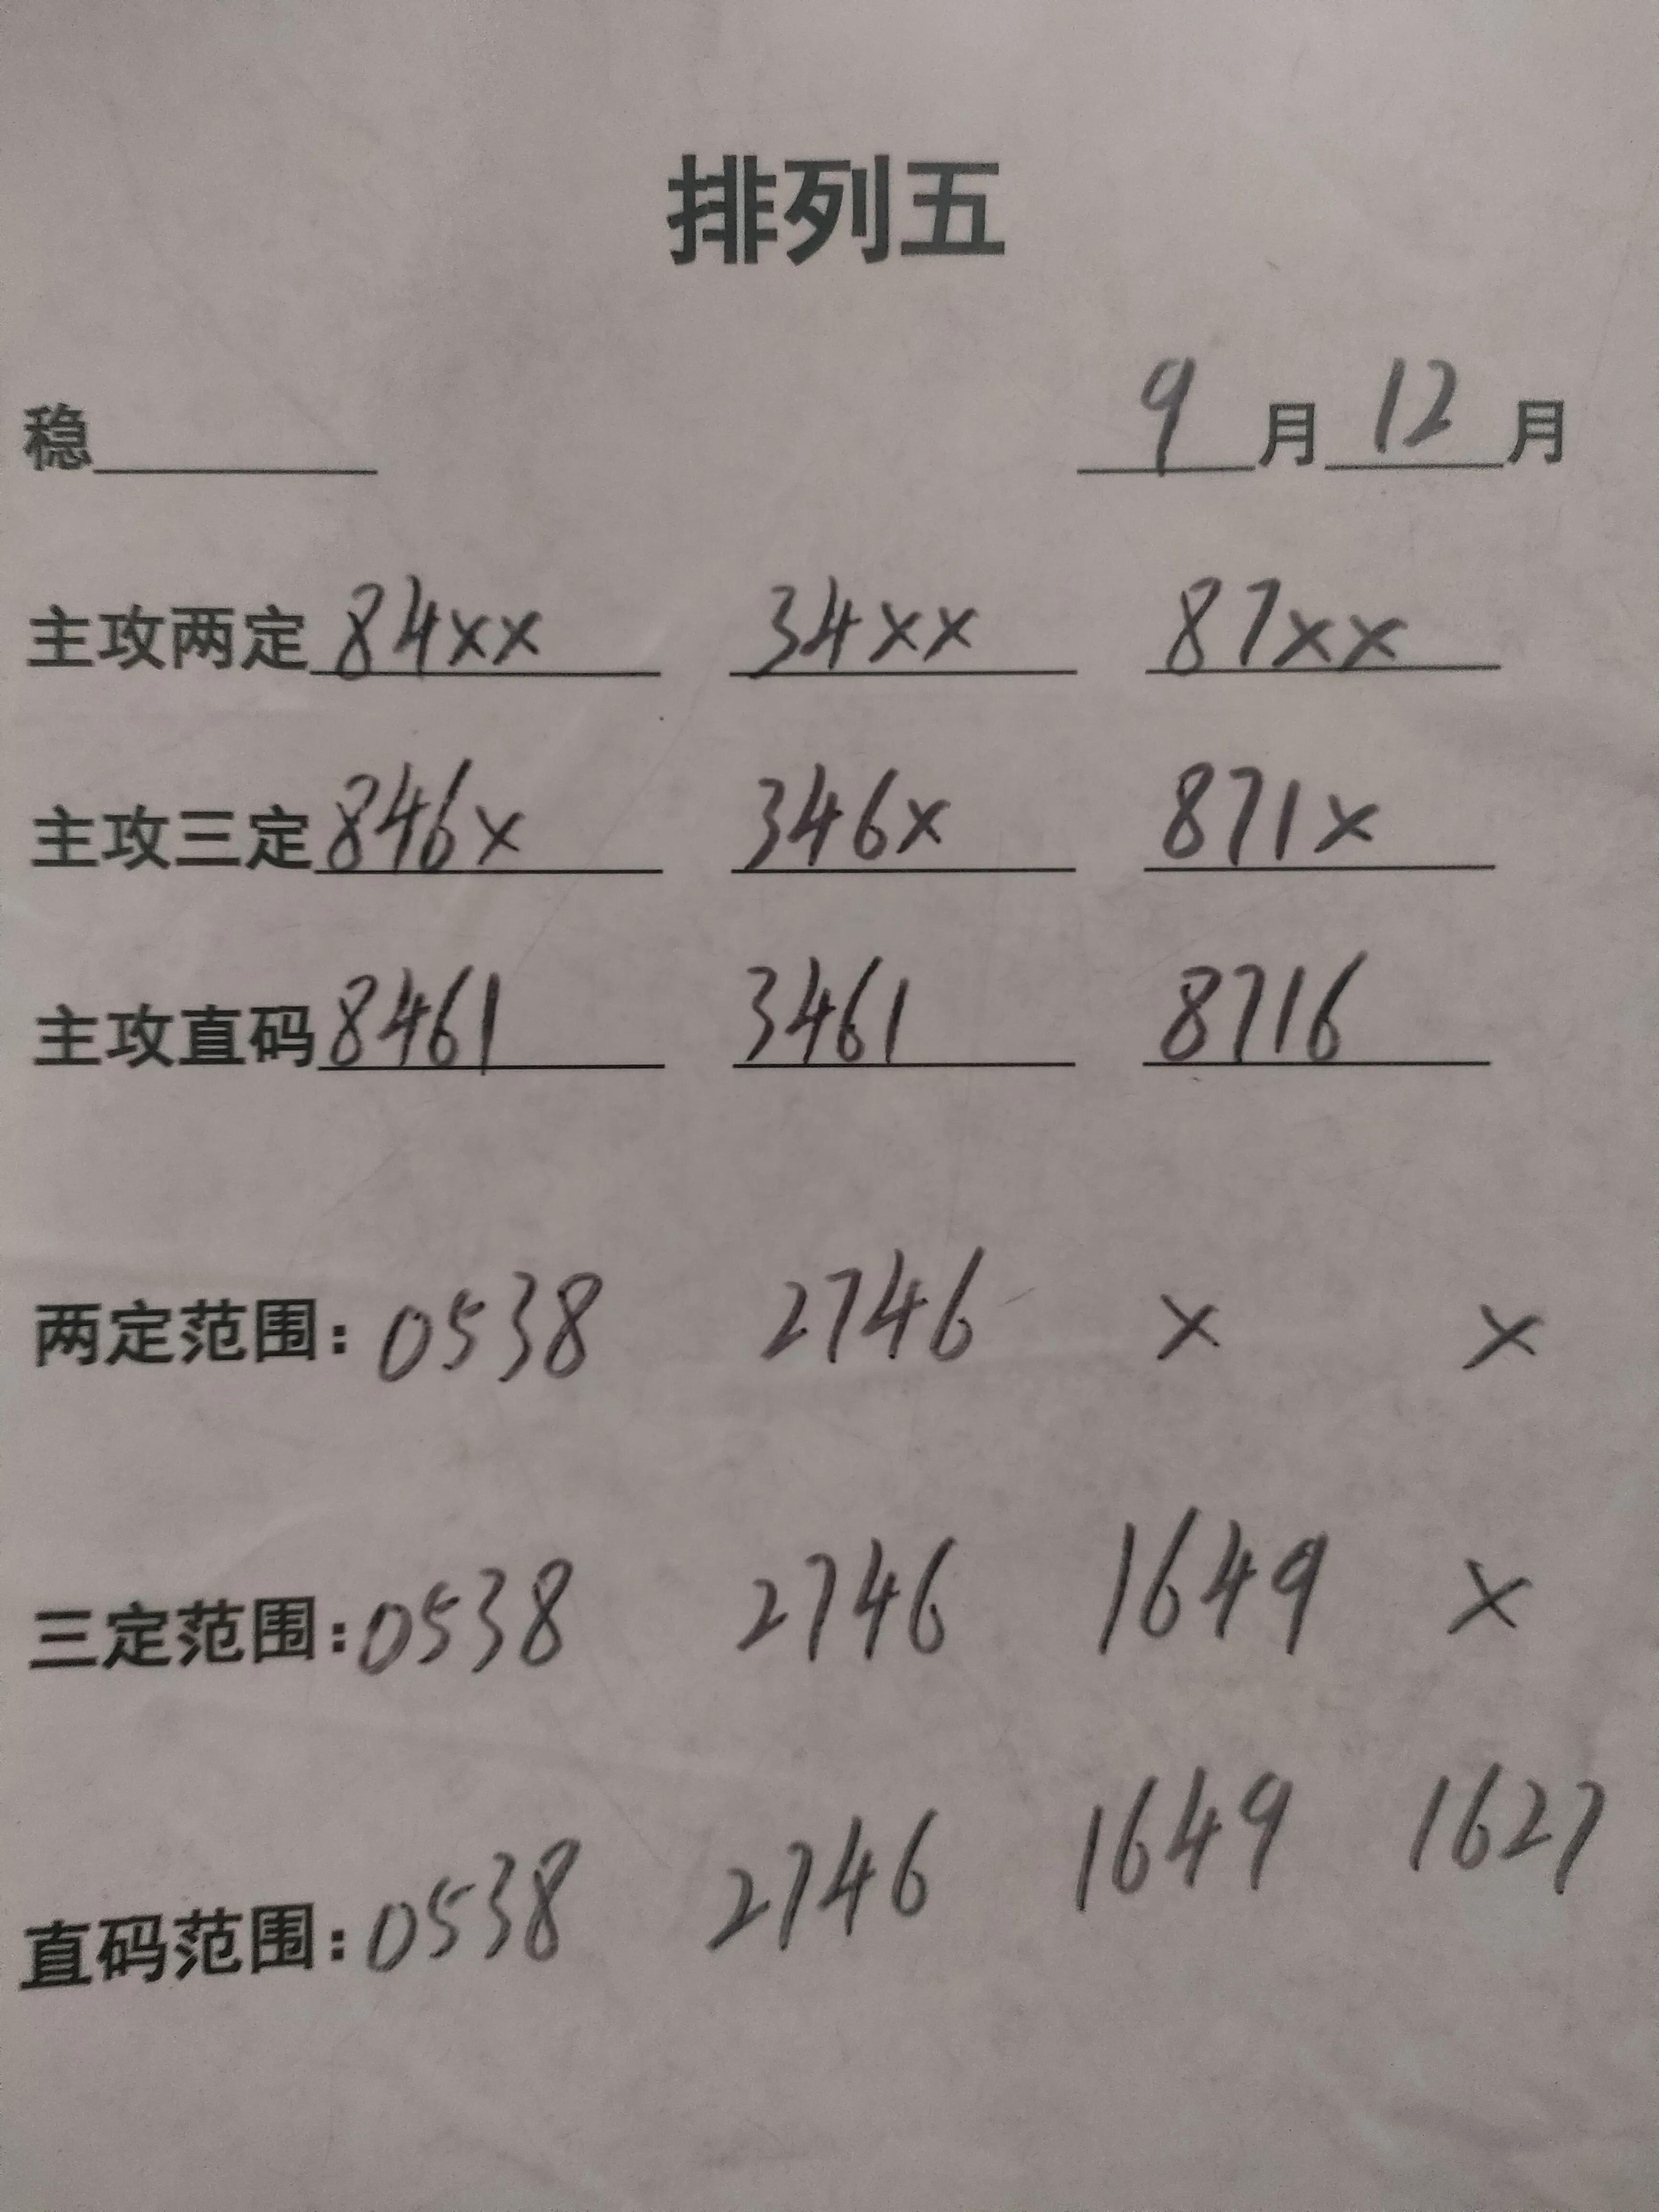 排列五
稳________ 9月12月
主攻两定 84xx 34xx 87xx
主攻三定 846x 346x 871x
主攻直码 8461 3461 8716
两定范围: 0538 2746 x x
三定范围: 0538 2746 1649 x
直码范围: 0538 2746 1649 1627